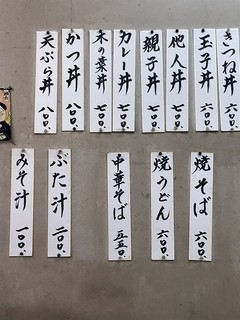 きつね丼 六〇〇、
玉子丼 六〇〇、
他人丼 七〇〇、
親子丼 七〇〇、
カレー丼 七〇〇、
木の葉丼 七〇〇、
かつ丼 八〇〇、
天ぷら丼 八〇〇、
焼そば 六〇〇、
焼うどん 六〇〇、
中華そば 五五〇、
ぶた汁 二〇〇、
みそ汁 一〇〇、